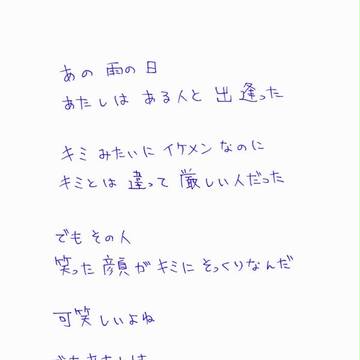 あの 雨の日
あたしは ある人と 出逢った
キミ みたいに イケメン なのに
キミとは 違って 厳しい人だった
でも その人
笑った 顔が キミに そっくりなんだ
可笑しいよね